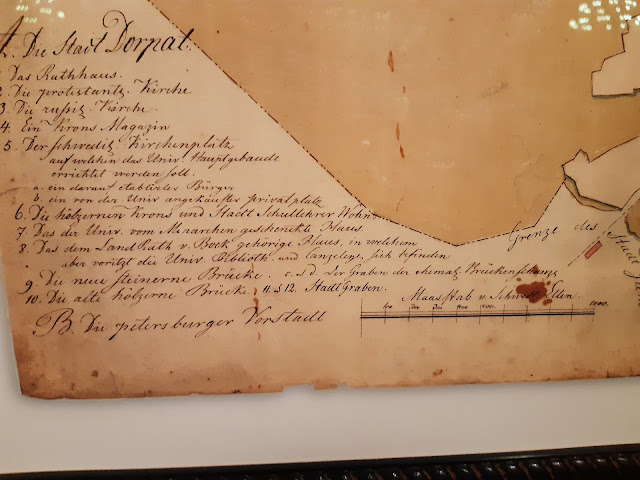 A. Die Stadt Dorpat.
1. Das Rathhaus.
2. Die protestantz. Kirche
3. Die russiz. Kirche.
4. Ein Krons Magazin
5. Der schwediz. Kirchenplatz
auf welchen das Univ. Hauptgebaude
errichtet werden soll.
a. ein darauf etablirter Bürger
b. ein von der Univ angekaufter privatplatz
6. Die hölzernen Krons und Stadt Schullehrer Wohn.
7. Das der Univ. vom Monarchen geschenkte Haus.
8. Das dem Land Rath v. Bock gehörige Haus, in welchem
aber voritzt die Univ. Biblioth. und Canzeley, sich befinden
9. Die neue steinerne Brücke. c. s d. Der Graben der ehemal. Brückenschanze
10. Die alte hölzerne Brücke. 11. s 12. Stadt Graben.
B. Die petersburger Vorstadt
Grenze des Stadt
Maasstab v. Schwed. Ellen.
100 200 300 400 500. 1000.